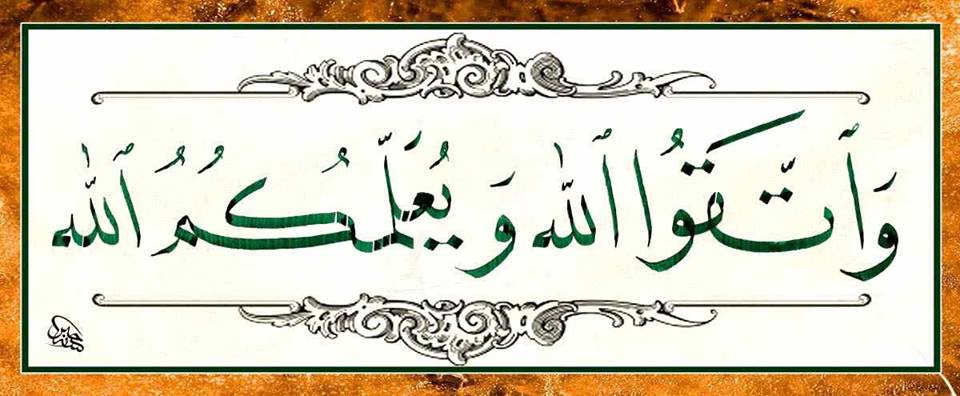 وَٱتَّقُوا ٱللّٰه وَيُعَلِّمُكُمُ ٱللّٰه